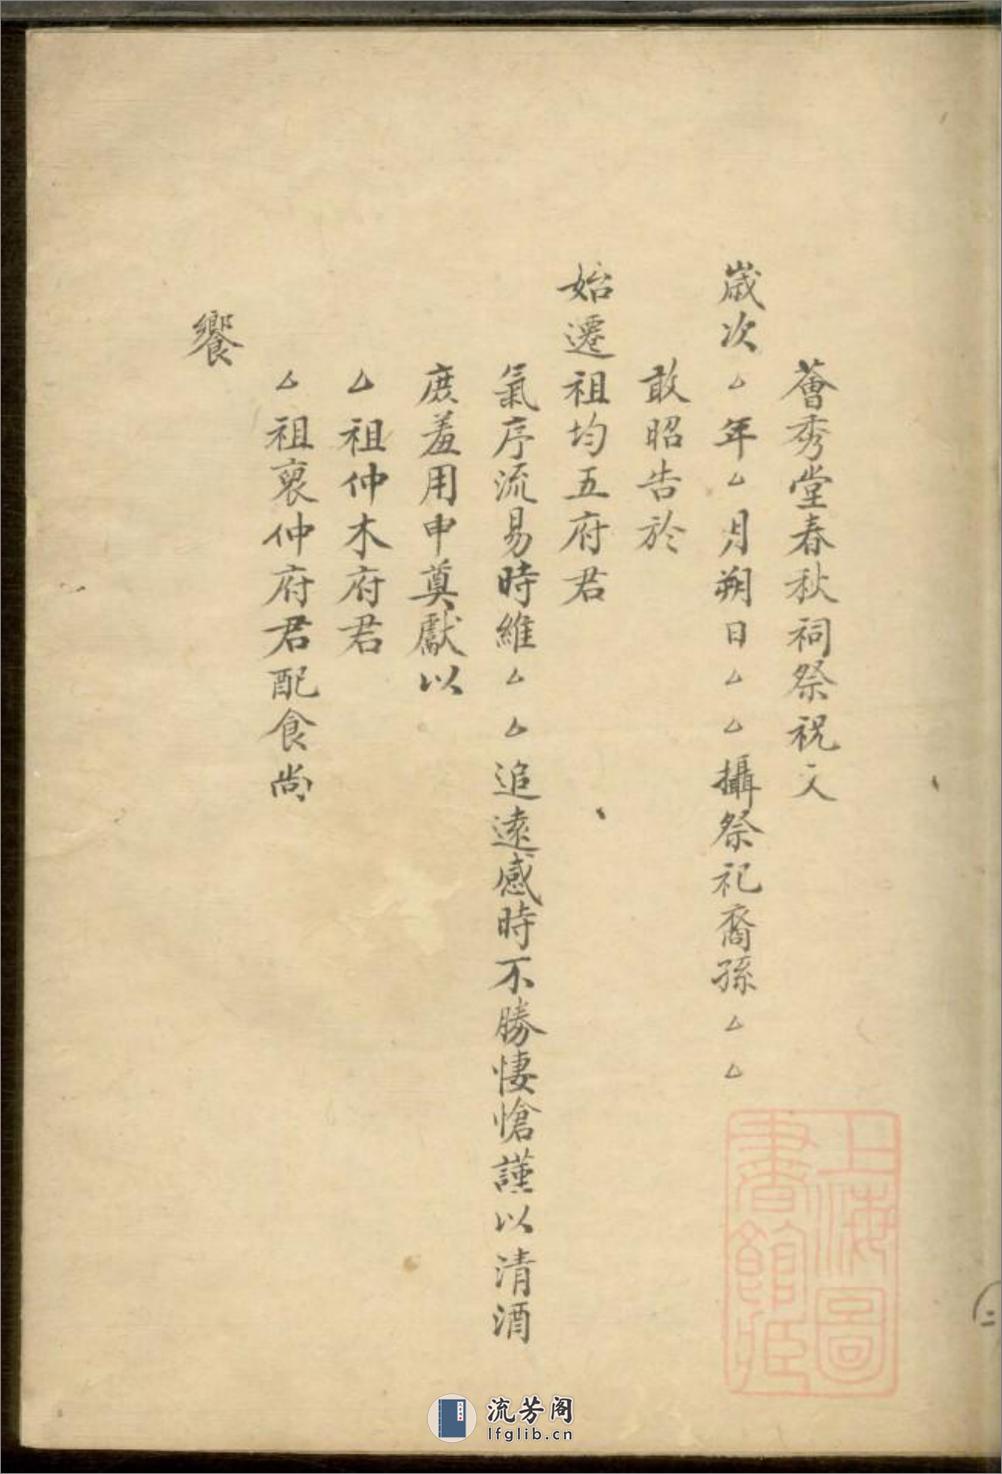 薈秀堂春秋祠祭祝文
歲次△年△月朔日△△攝祭祀裔孫△△
敢昭告於
始遷祖均五府君
氣序流易時維△△追遠感時不勝悽愴謹以清酒
庶羞用申奠獻以
△祖仲木府君
△祖裒仲府君配食尚
饗
上海圖
書館藏
二
流芳阁
lfglib.cn